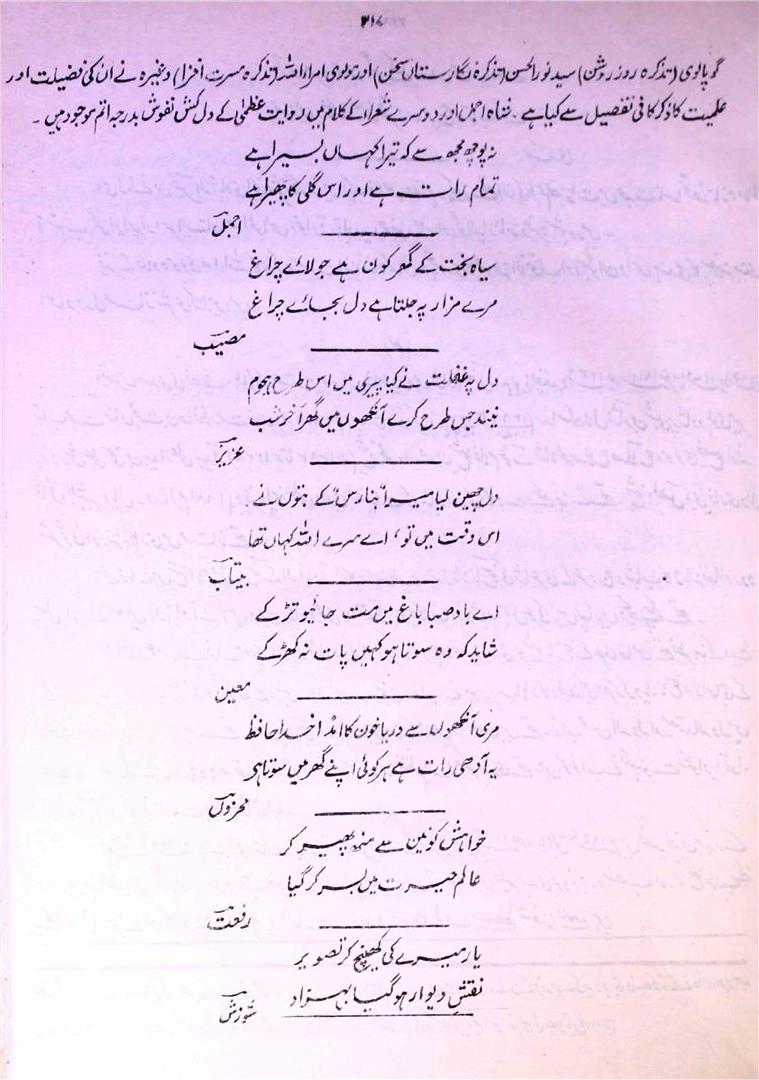 ۳۱۸
گوپاموی (تذکرہ روز روشن) سید نورالحسن (تذکرہ نگارستان سخن) اور مولوی امراراللہ (تذکرہ مسرت افزا) وغیرہ نے ان کی فضیلت اور
علمیت کا ذکر کافی تفصیل سے کیا ہے۔ شاہ اجمل اور دوسرے شعراء کے کلام میں روایت عظمٰی کے دل کش نقوش بدرجہ اتم موجود ہیں۔
نہ پوچھ مجھ سے کہ تیرا کہاں بسیرا ہے
تمام رات ہے اور اس گلی کا پھیرا ہے
اجمل
سیاہ بخت کے گھر کون ہے جو لائے چراغ
مرے مزار پہ جلتا ہے دل بجائے چراغ
مصیب
دل پہ غفلت نے کیا پیری میں اس طرح ہجوم
نیند جس طرح کرے آنکھوں میں گھر آخر شب
عزیز
دل چھین لیا میرا بنارس کے بتوں نے
اس وقت میں تو، اے مرے اللہ کہاں تھا
بیتاب
اے باد صبا باغ میں مت جائیو تڑکے
شاید کہ وہ سوتا ہو کہیں پات نہ کھڑکے
معین
مری آنکھوں سے دریا خون کا امڈا خدا حافظ
یہ آدھی رات ہے ہر کوئی اپنے گھر میں سوتا ہی
محزوں
خواہش کونین سے منھ پھیر کر
عالم حیرت میں بسر کر گیا
رفعت
یار میرے کی کھینچ کر تصویر
نقش دیوار ہو گیا بہزاد
شورش